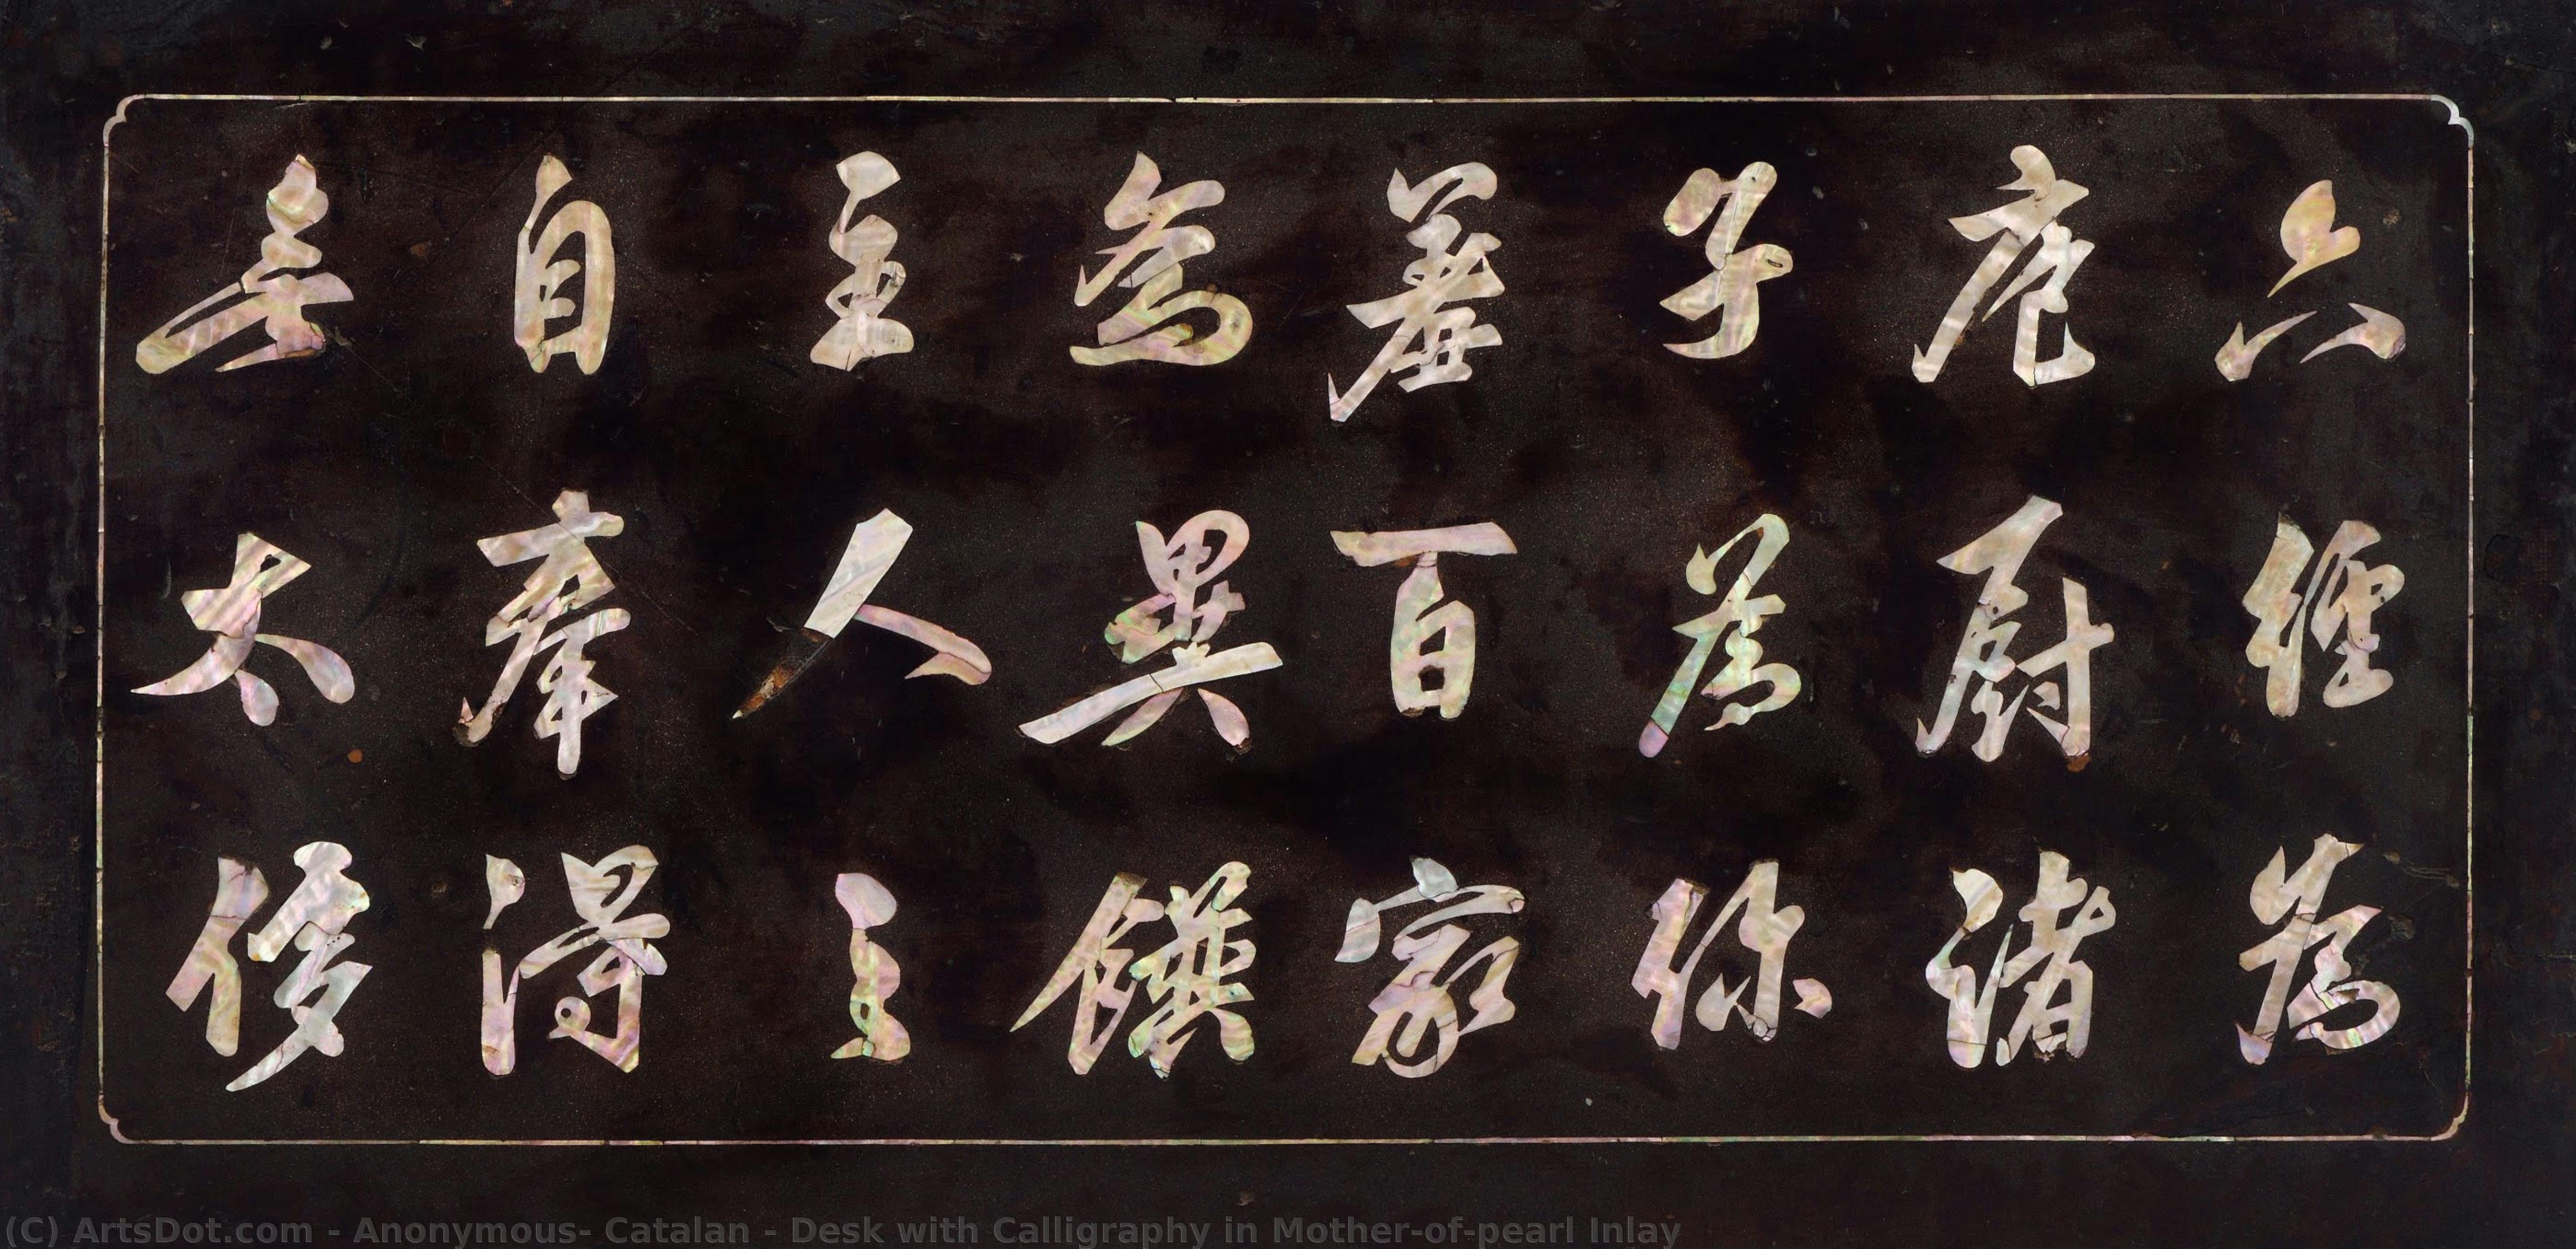 六經為
庖厨諸
子為珎
羞百家
為異饌
主人之
自奉得
無太侈
(C) ArtsDot.com - Anonymous- Catalan - Desk with Calligraphy in Mother-of-pearl Inlay